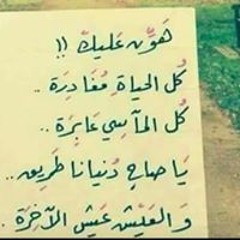 هَوِّن عَليكْ !!
كُل الحياةِ مُغَادِرَة ..
كُل المآسِي عَابِرَة ..
يَا صَاحِ دُنيانا طَرِيق ..
وَ العَيْش عَيْش الآخِرَة .